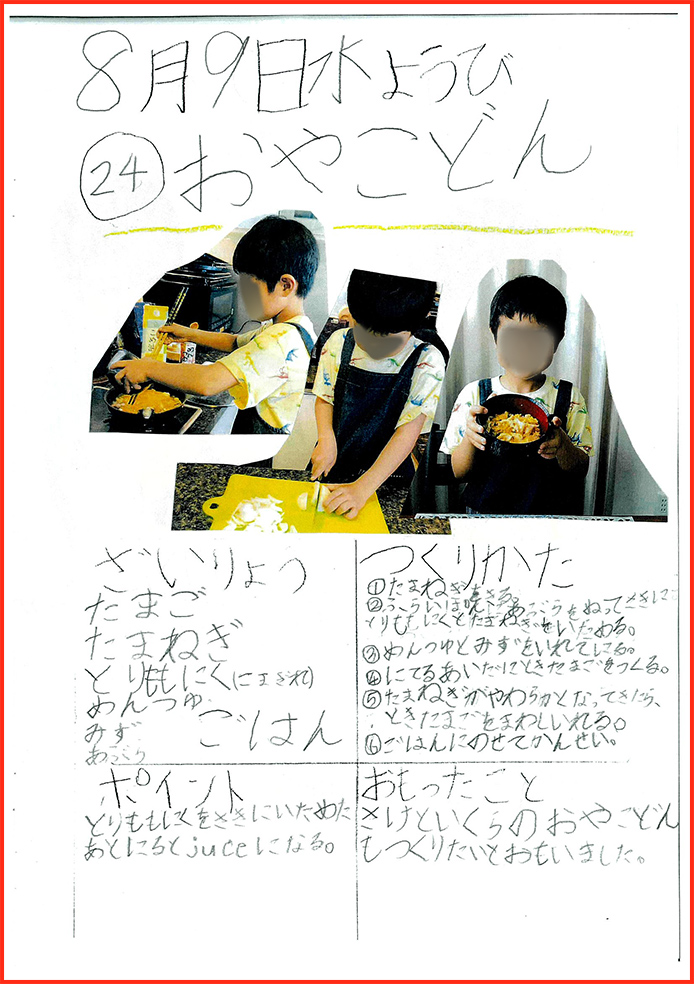 8月9日水ようび
24 おやこどん
ざいりょう
たまご
たまねぎ
とりももにく(こまぎれ)
めんつゆ
みず
ごはん
つくりかた
①たまねぎをきる。
とりももにくとたまねぎをいためる。
③めんつゆとみずをいれてにる。
④にてるあいだにときたまごをつくる。
⑤たまねぎがやわらかくなってきたら、
ときたまごをまわしいれる。
⑥ごはんにのせてかんせい。
ポイント
とりももにくをさきにいためた
あとにるとjuceになる。
おもったこと
さけといくらのおやこどん
もつくりたいとおもいました。